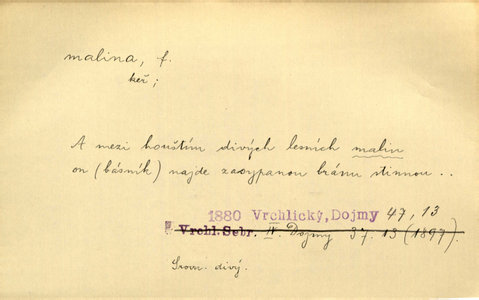 malina, f.
keř;
A mezi houštím divých lesních malin
on (básník) najde zasypanou bránu stinnou ..
1880 Vrchlický, Dojmy 47, 13
Vrchl. Sebr. IV. Dojmy 37. 13 (1897).
Srovn. divý.